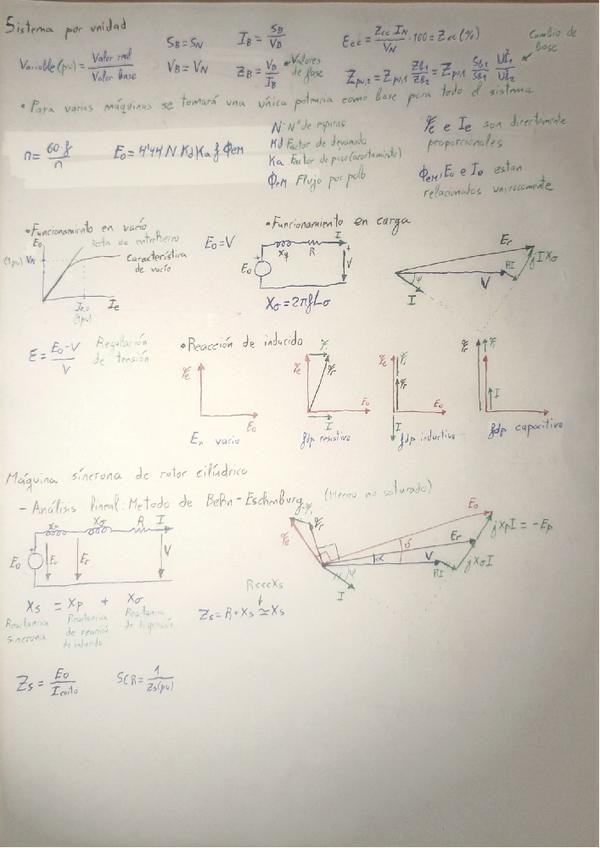 Sistema por unidad
Variable (pu) = Valor real / Valor base
S_B = S_N
V_B = V_N
I_B = S_B / V_B
Z_B = V_B / I_B
Valores de fase
Ecc = Zcc I_N / V_N · 100 = Zcc (%)
Z_pu,2 = Z_pu,1 Z_B1 / Z_B2 = Z_pu,1 S_B2 / S_B1 U²_B1 / U²_B2
Cambio de base
• Para varias máquinas se tomará una única potencia como base para todo el sistema
n = 60 f / n
E_o = 4'44 N Kd Ka f Φ_em
N: Nº de espiras
Kd Factor de devanado
Ka Factor de paso (acortamiento)
Φ_em Flujo por polo
F_e e I_e son directamente proporcionales
Φ_em, E_o e I_o estan relacionados univocamente
• Funcionamiento en vacío
E_o
Recta de entrehierro
(1pu) V_N
Característica de vacío
I_e,o
(1pu)
I_e
E_o = V
• Funcionamiento en carga
E_o
R
I
V
X_σ = 2πfL_σ
E_r
jIX_σ
RI
V
φ
I
ε = E_o - V / V
Regulación de tensión
• Reacción de inducido
E_o
En vacio
fdp resistivo
fdp inductivo
fdp capacitivo
Máquina síncrona de rotor cilíndrico
- Análisis lineal. Metodo de Behn-Eschenburg (Hierro no saturado)
X_p
X_σ
R
I
E_o
E_r
V
X_s = X_p + X_σ
Reactancia síncrona
Reactancia de reacción de inducido
Reactancia de dispersión
R<<<X_s
Z_s = R + X_s ≃ X_s
E_o
jX_pI = -E_p
E_r
jX_σI
δ
V
RI
φ
I
Z_s = E_o / I_corto
SCR = 1 / Z_s(pu)